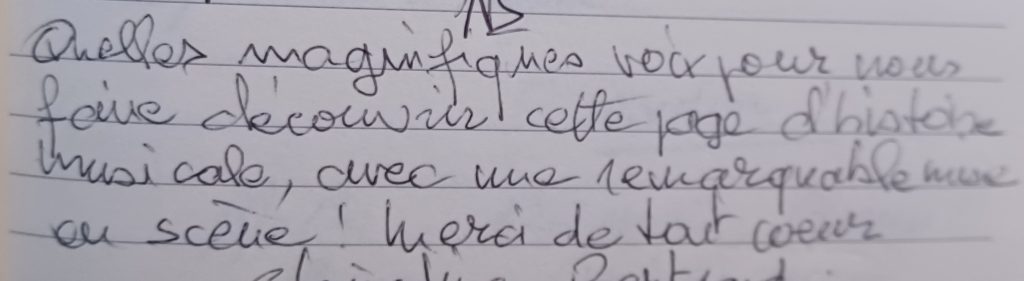 Quelles magnifiques voix pour nous
faire découvrir cette page d'histoire
musicale, avec une remarquable mise
en scène ! Merci de tout coeur